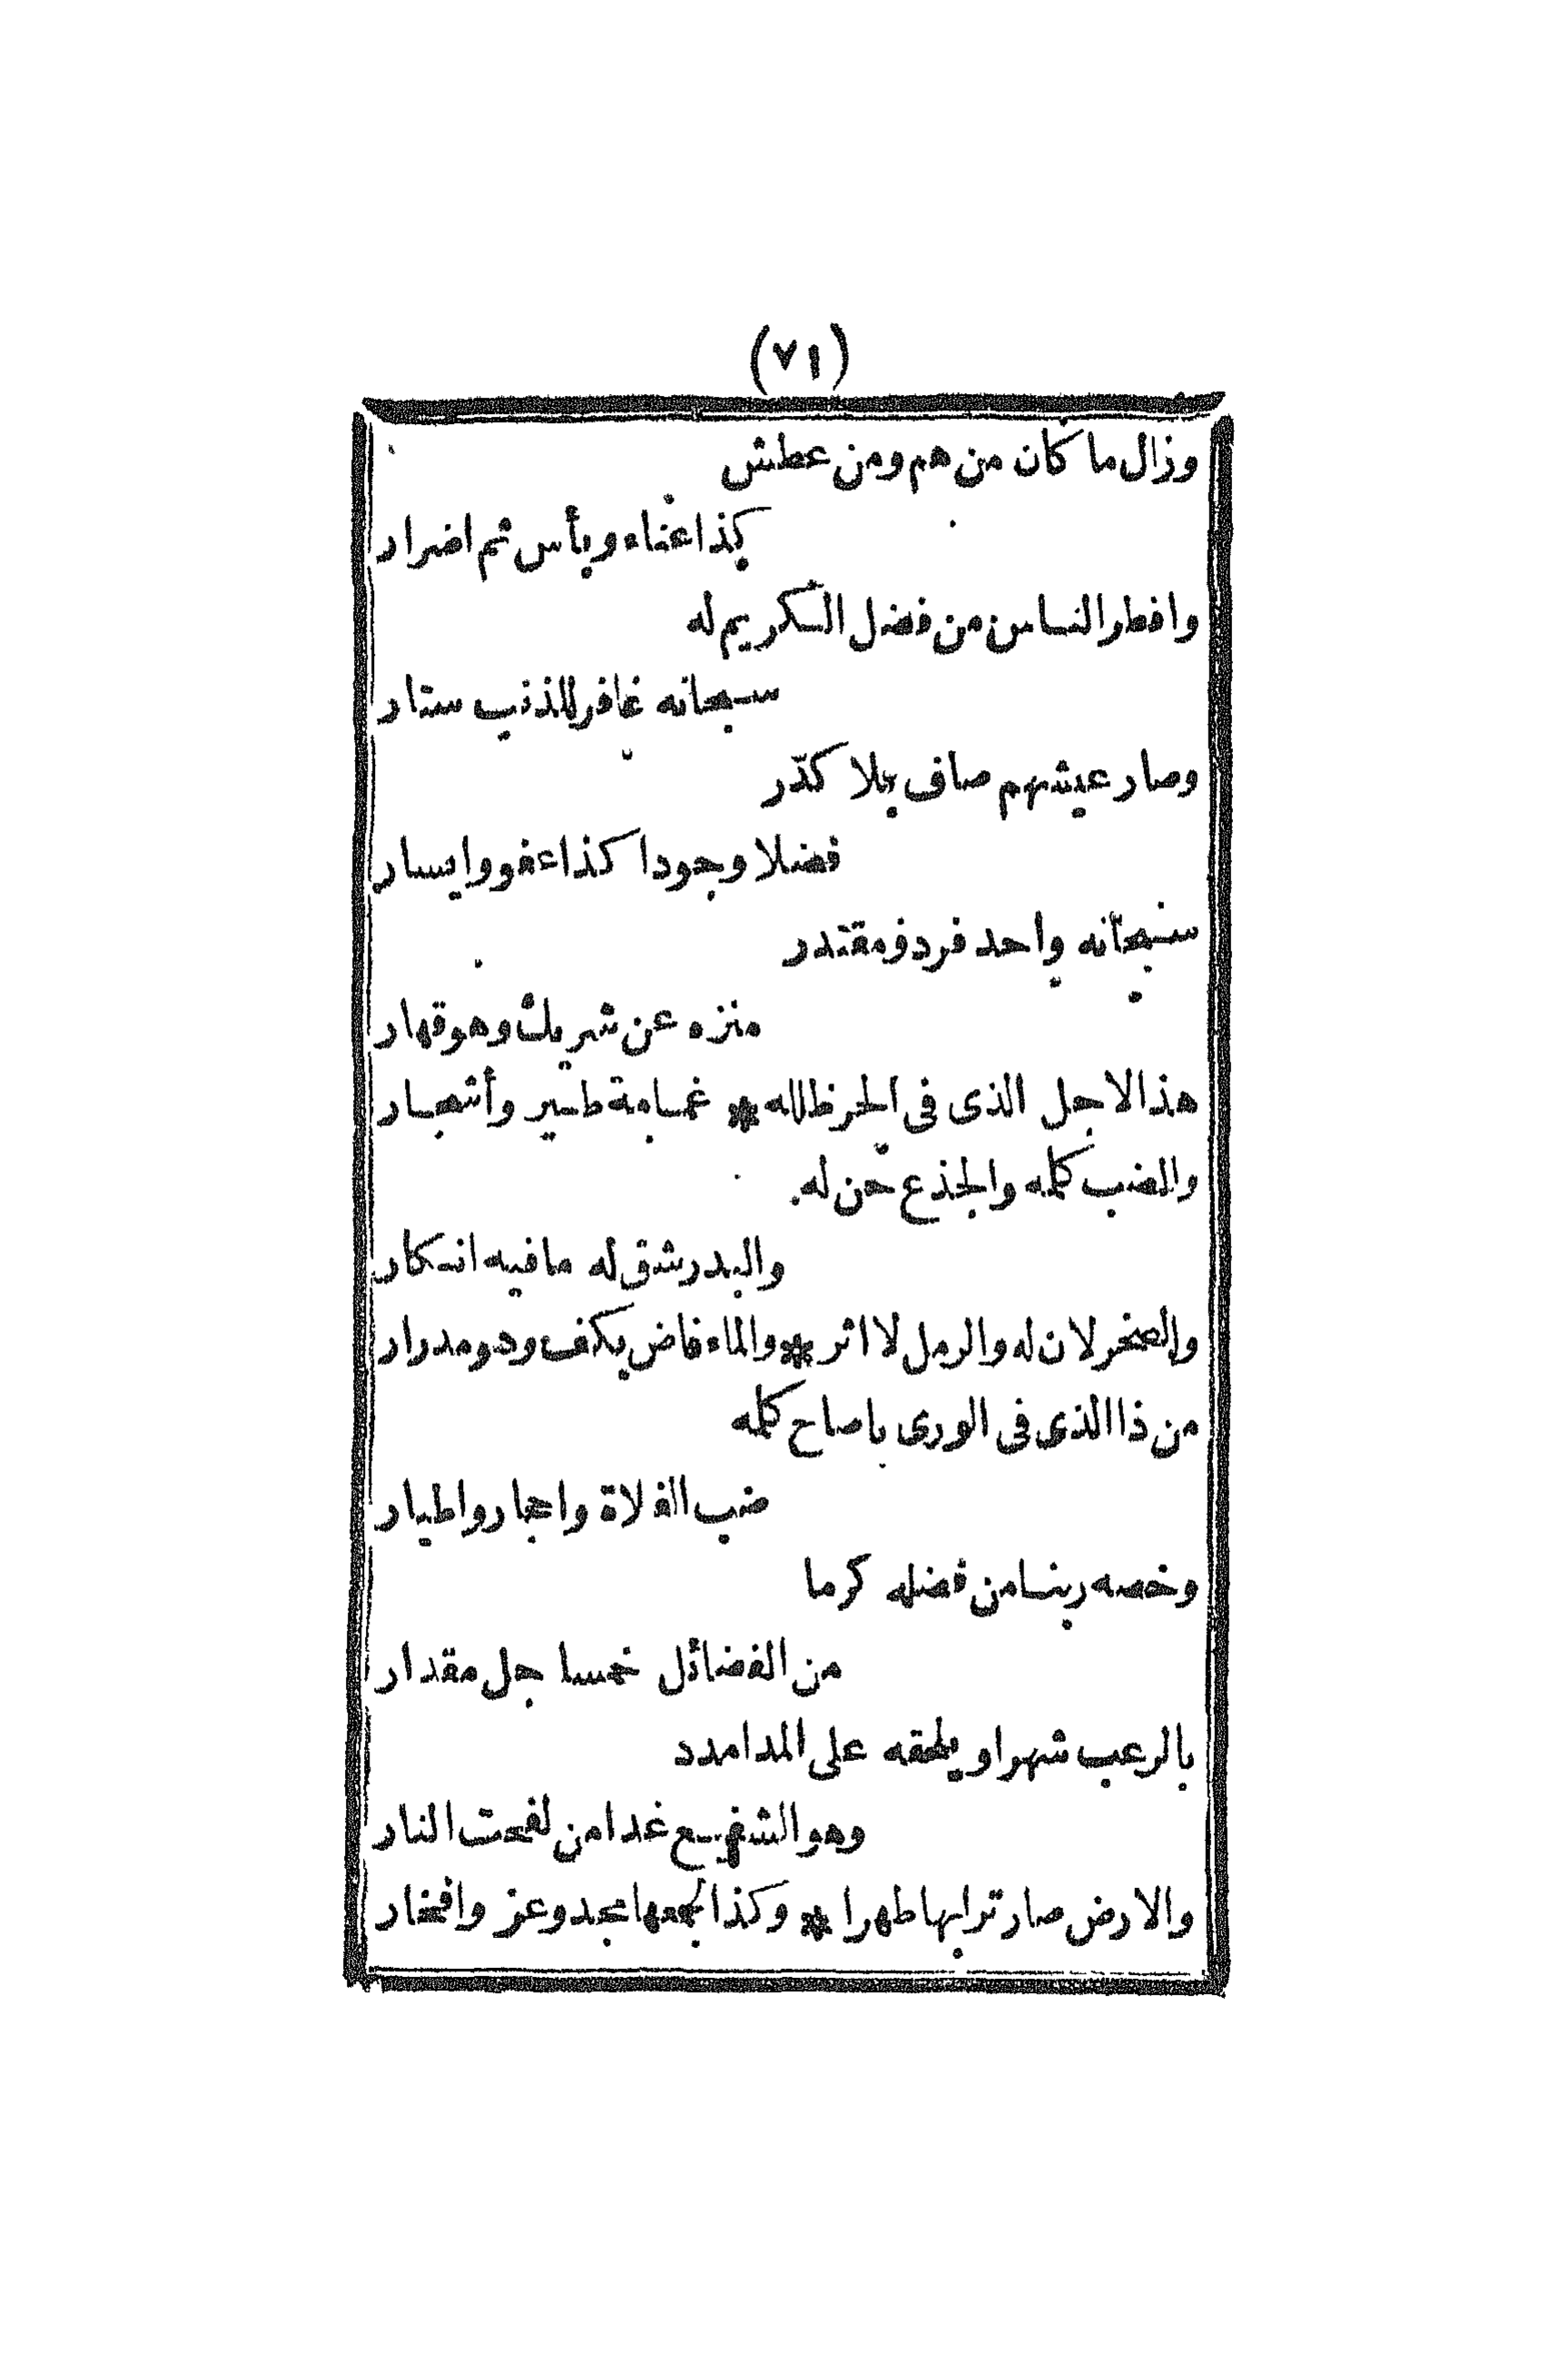 (٧١)
وزال ما كان من هم ومن عطش
كذا عناء وبأس ثم اضرار
وافطر الناس من فضل الكريم له
سبحانه غافر للذنب ستار
وصار عيشهم صاف بلا كدر
فضلا وجودا كذا عفو وايسار
سبحانه واحد فرد ومقتدر
منزه عن شريك وهو قهار
هذا الاجل الذى فى الحر ظلله * غمامة طير وأشجار
والضب كلمه والجذع حن له
والبدر شق له ما فيه انكار
والصخر لان له والرمل لا اثر * والماء فاض بكف وهو مدرار
من ذا الذى فى الورى ياصاح كلمه
ضب الفلاة واحجار واطيار
وخصه ربنا من فضله كرما
من الفضائل خمسا جل مقدار
بالرعب شهرا ويلحقه على المدا مدد
وهو الشفيع غدا من لفحت النار
والارض صار ترابها طهرا * وكذا لجمعها مجد وعز وافتخار